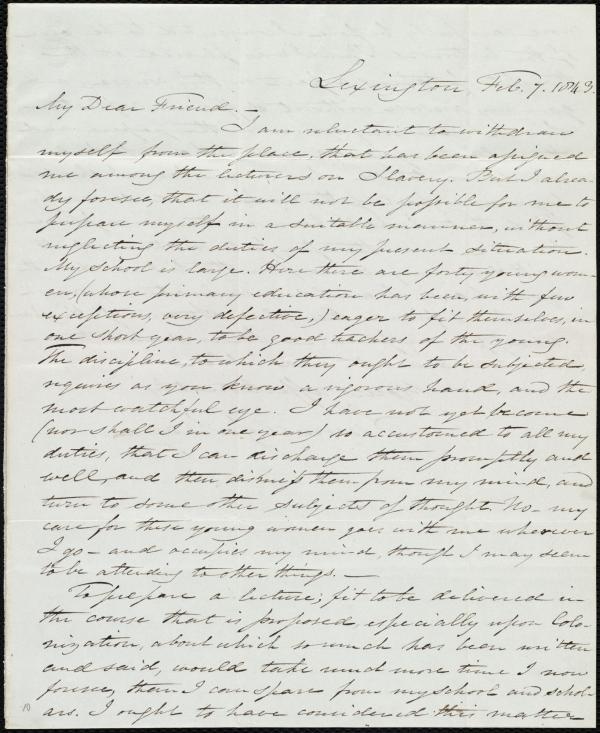 Lexington Feb. 7. 1843.
My Dear Friend. —
I am reluctant to withdraw
myself from the place, that has been assigned
me among the lecturers on Slavery. But I alrea-
dy foresee, that it will not be possible for me to
prepare myself in a suitable manner, without
neglecting the duties of my present situation.
My school is large. Here there are forty young wom-
en, (whose primary education has been, with few
exceptions, very defective,) eager to fit themselves, in
one short year, to be good teachers of the young.
The discipline, to which they ought to be subjected,
requires as you know a vigorous hand, and the
most watchful eye. I have not yet become
(nor shall I in one year) so accustomed to all my
duties, that I can discharge them promptly and
well, and then dismiss them from my mind, and
turn to some other subjects of thought. No – my
care for these young women goes with me wherever
I go – and occupies my mind, though I may seem
to be attending to other things. —
To prepare a lecture, fit to be delivered in
the course that is proposed especially upon Colo-
nization, about which so much has been written
and said, would take much more time I now
foresee, than I can spare from my school and schol-
ars. I ought to have considered this matter
10